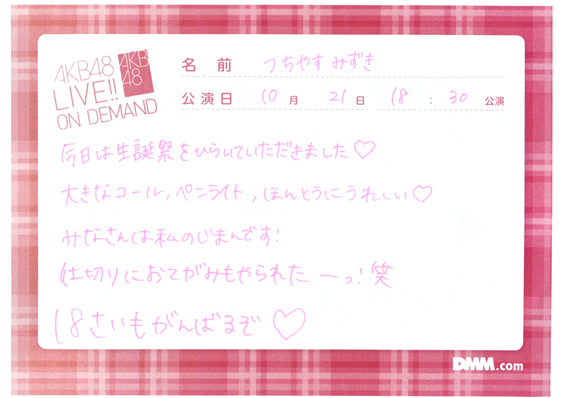 AKB48
LIVE!!
ON DEMAND
AKB
48
名前 つちやす みずき
公演日 10月 21日 18:30 公演
今日は生誕祭をひらいていただきました♡
大きなコール,ペンライト,ほんとうにうれしい♡
みなさんは私のじまんです!
仕切りにおてがみもやられたーっ!笑
18さいもがんばるぞ♡
DMM.com